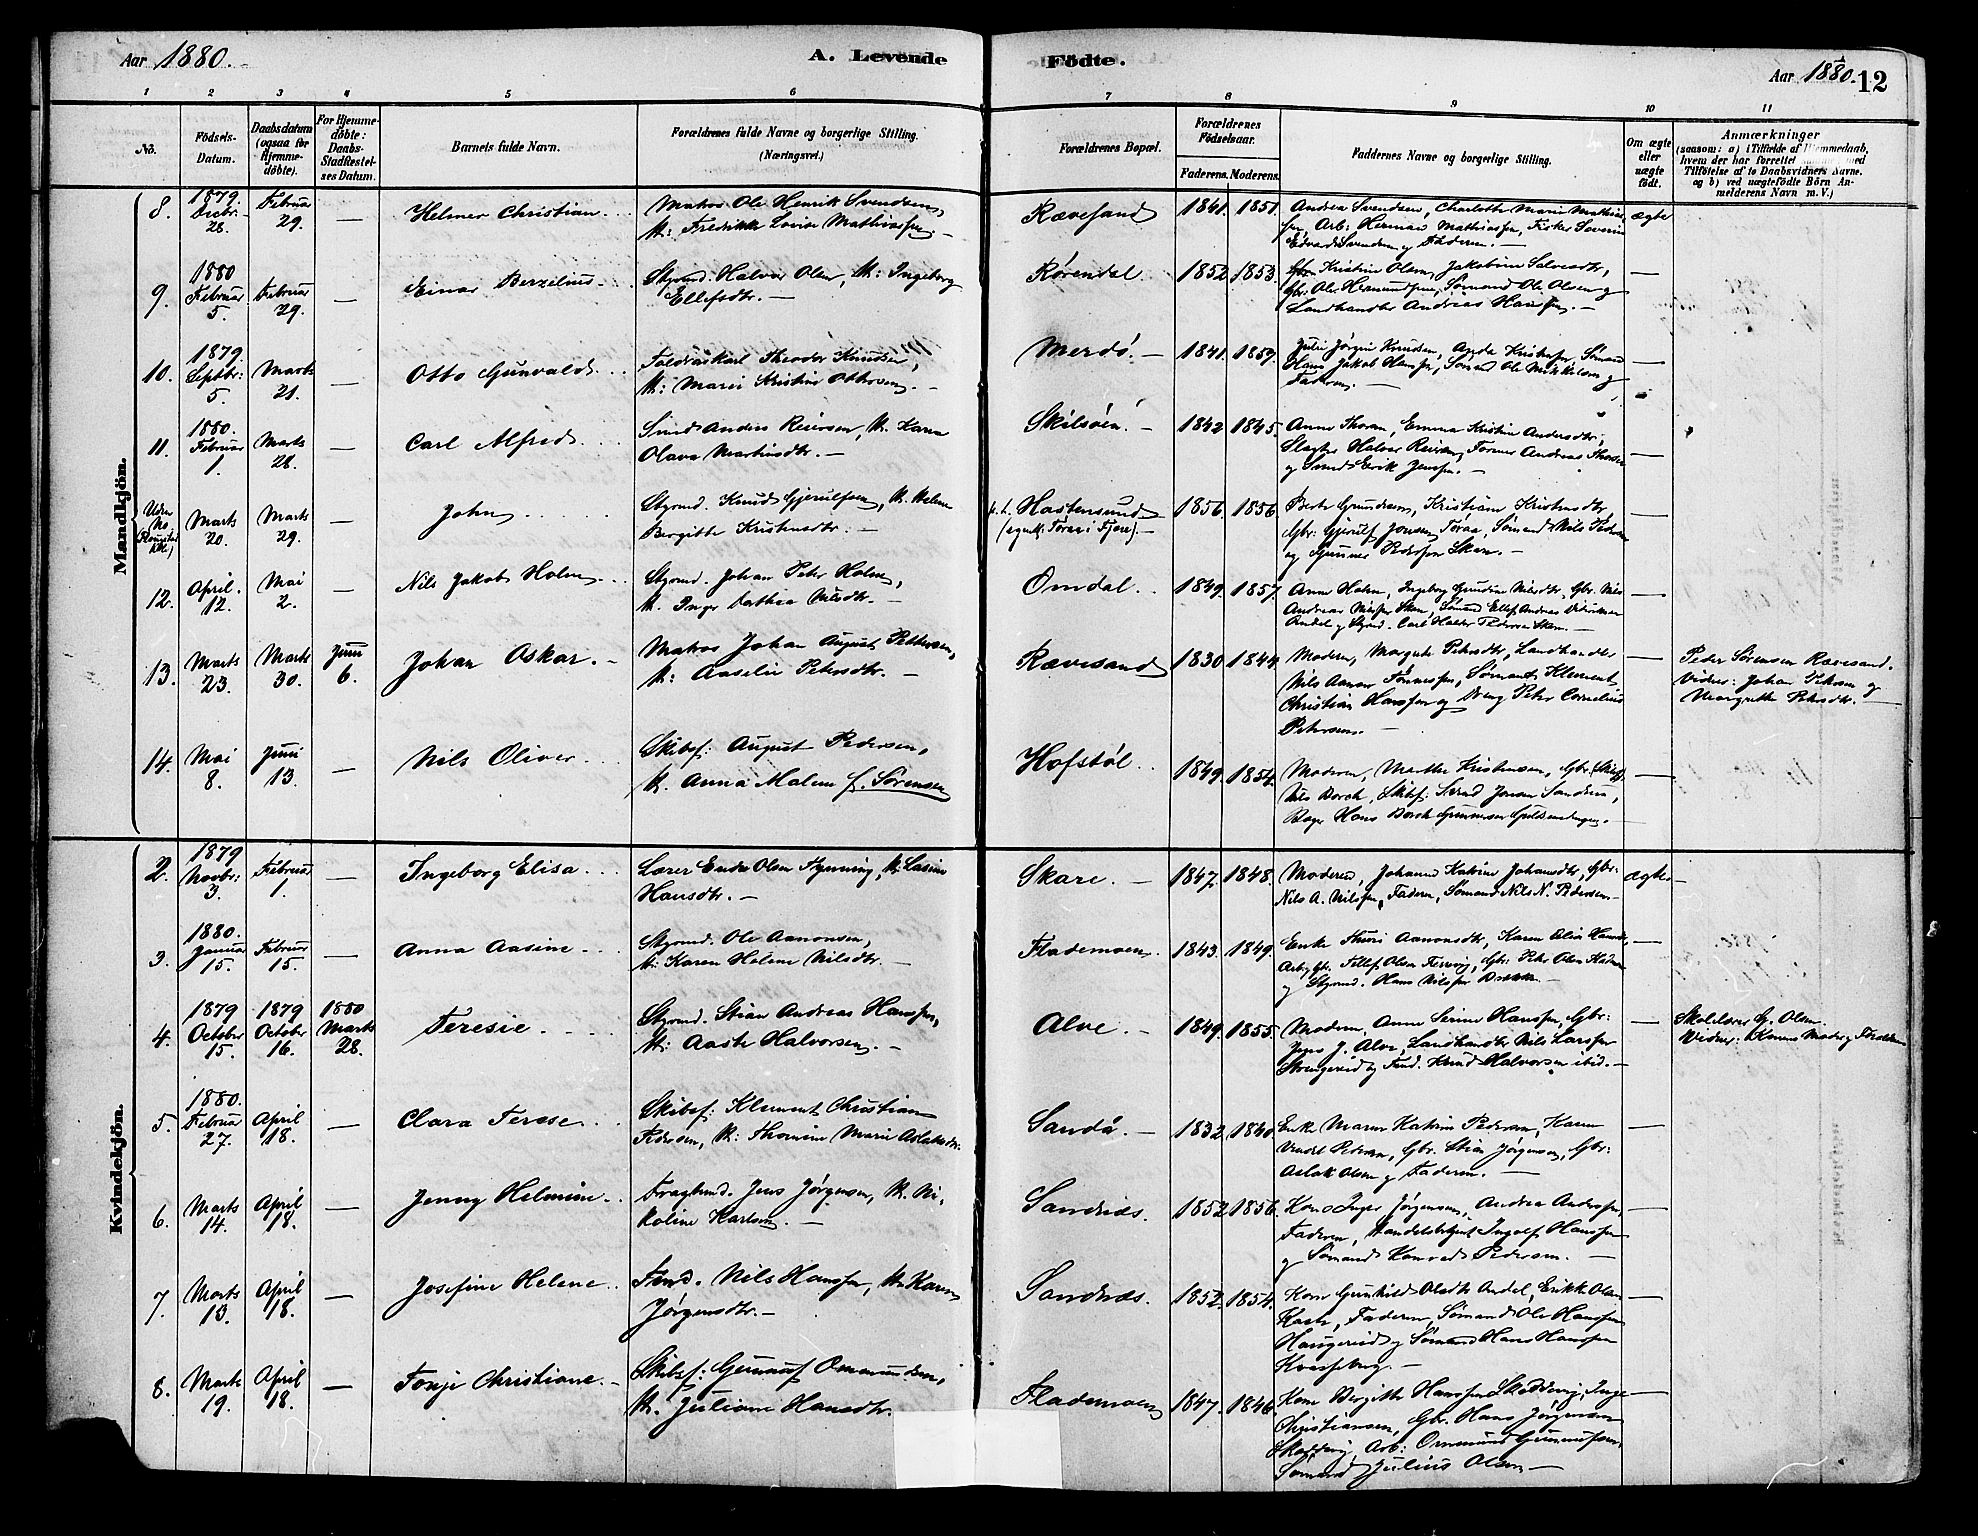 Aar 1880.
A. Levende
Födte.
Aar 1880.
12
1 2 3 4 5 6 7 8 9 10 11
No.
Födsels-
Datum.
Daabsdatum
(ogsaa for
Hjemme-
döbte).
For Hjemme-
döbte:
Daabs-
Stadfæstel-
ses Datum.
Barnets fulde Navn.
Forældrenes fulde Navne og borgerlige Stilling.
(Næringsvei.)
Forældrenes Bopæl.
Forældrenes
Födselsaar.
Faderens. Moderens.
Faddernes Navne og borgerlige Stilling.
Om ægte
eller
uægte
födt.
Anmærkninger
(saasom: a) i Tilfælde af Hjemmedaab,
hvem der har forrettet samme, med
Tilföielse af to Daabsvidners Navne,
og b) ved uægtefödte Börn An-
melderens Navn m. V.)
Mandkjön.
8. 1879 Decbr. 28. Februar 29. — Helmer Christian
Matros Ole Henrik Svendsen,
K: Fredrikke Lovise Mathiassen. —
Rævesand 1841. 1851.
Andrea Svendsen, Charlotte Marie Mathias-
sen, Arb: Herman Mathiassen, Fisker Severin
Edvard Svendsen og Faderen. —
ægte
9. 1880 Februar 5. Februar 29. — Einar Berzelius
Styrmd. Halvor Olsen, K: Ingeborg
Ellefsdtr. —
Rørendal 1852 1853.
Kristine Olsen, Jakobine Salvesdtr,
Gbr: Ole Hermundsen, Sømand Ole Olsen og
Landhandler Andreas Hanssen. —
10. 1879. Septbr: 5. Marts 21. — Otto Gunvald
Theodor Knudsen,
K: Marie Kristine Ottersen. —
Merdø. — 1841. 1859.
Julie Jørgine Knudsen, Sømand
Hans Jakob Hanssen, Sømand Ole Mikkelsen og
Faderen. —
11. 1880. Februar 1. Marts 28. — Carl Alfred
Smed Anders Reiersen, K. Karen
Olava Martinsdtr. —
Skilsøen. — 1842 1845.
Anne Thoren, Emma Kristine Andersdtr,
Slagter Halvor Reiersen, Former Andreas Thorsen
og Smed Erik Jenssen. —
Uden No Marts 20. Marts 29. — John
Styrmd. Knud Gjerulfsen, K. Helene
Bergitte Kristensdtr. —
p.t. Hastensund
(egentl. Torae i Fjære). —
1856. 1856
Berte Gundersen, Kristiane Kristensdtr,
Gbr: Gjerulf Jonsen Toraa, Sømand Nils Pedersen
og Gunner Pedersen Skare. —
12. April. 12. Mai 2. — Nils Jakob Holm
Styrmd. Johan Peter Holm,
K. Inger Dorthea Nilsdtr. —
Omdal. 1849. 1857.
Anne Holm, Ingeborg Gundine Nilsdtr, Gbr. Nils
Andreas Nilssen Skare, Sømand Ellef Andreas
Omdal og Styrmd. Carl Halvor Pedersen Skare. —
13. Marts 23. Marts 30. Juni 6. Johan Oskar. —
Matros Johan August Pettersen,
K: Aaselie Petersdtr. —
Rævesand 1830 1844
Moderen, Margrete Petersdtr, Landhandler
Nils Aanon Tønnessen, Sømand Klement
Christian Hanssen og Dreng Peter Cornelius
Petersen. —
Peder Sørensen Rævesand.
Vidner: Johan Petersen og
Margrethe Petersdtr. —
14. Mai 8. Juni 13. — Nils Oliver
Skibsf: August Pedersen,
K. Anna Malene f. Sørensen
Hofstøl. 1849. 1854.
Moderen, Marthe Kristensen, Gbr: (Skibsf)
Nils Borch, Skibsf: Svend Jensen Sandnes,
Bager Hans Borch Gunnersen Guldsmedengen. —
Kvindekjön.
2. 1879 Novbr: 3. Februar 1. — Ingeborg Elisa
Lærer Endre Olsen Hynning, K: Lasine
Hansdtr. —
Skare. — 1847. 1848.
Moderen, Johanne Katrine Johansdtr, Gbr:
Nils A. Nilsen, Faderen, Sømand Nils N. Pedersen. —
ægte
3. 1880. Januar 15. Februar 15. — Anna Aasine
Styrmd. Ole Aanonsen,
K: Karen Helene Nilsdtr. —
Flademoen. 1843. 1849.
Enke Thuri Aanonsdtr, Karen Alia Hansdtr,
Tellef Olsen Færevig, Gbr: Peter Olsen
og Styrmd. Hans Nilssen —
4. 1879 October 15. 1879 October 16. 1880 Marts 28. Teresie.
Styrmd. Stian Andreas Hanssen,
K: Aaste Halvorsen. —
Alve. — 1849. 1855.
Moderen, Anne Serine Hanssen, Gbr:
Jens J. Alve, Landhandler Nils Larssen
Strengereid og Tmd. Knud Halvorsen ibid. —
Skolelærer G. Olsen.
Vidner: Konens Moder og Faderen
5. 1880. Februar 27. April 18. — Clara Terese
Skibsf: Klement Christian
Pedersen, K: Thomine Marie Aslaksdtr.
Sandø. — 1832 1840.
Enke Maren Katrine Pedersen, Karen
Vendel Pedersen, Gbr: Stian Jørgensen, Gbr:
Aslak Olsen og Faderen. —
6. Marts 14. April 18. — Jenny Helmine
Jens Jørgensen, K. Ni-
koline Karlsen. —
Sandnæs. 1852 1856.
Kone Inger Jørgensen, Andrea Anderssen,
Faderen, Handelsbetjent Ingolf Hanssen
og Sømand Konrad Pedersen. —
7. Marts 13. April 18. — Josefine Helene
Tmd. Nils Hanssen, K. Karen
Jørgensdtr. —
Sandnæs. 1852. 1854.
Kone Gunhild Olsdtr Omdal, Erikke Olsen
Faderen, Sømand Ole Hanssen
Haugereid og Sømand Hans Hanssen
—
8. Marts 19. April 18. — Tonje Christiane. —
Skibsf: Gunnuf Ommundsen,
K. Juliane Hansdtr.
Flademoen 1847. 1846.
Kone Bergitte Hanssen Skoddevig, Inge
Christiansen, Gbr. Hans Jørgensen
Skoddevig, Arb: Ommund Gunnufsen,
Sømand Julius Olsen —